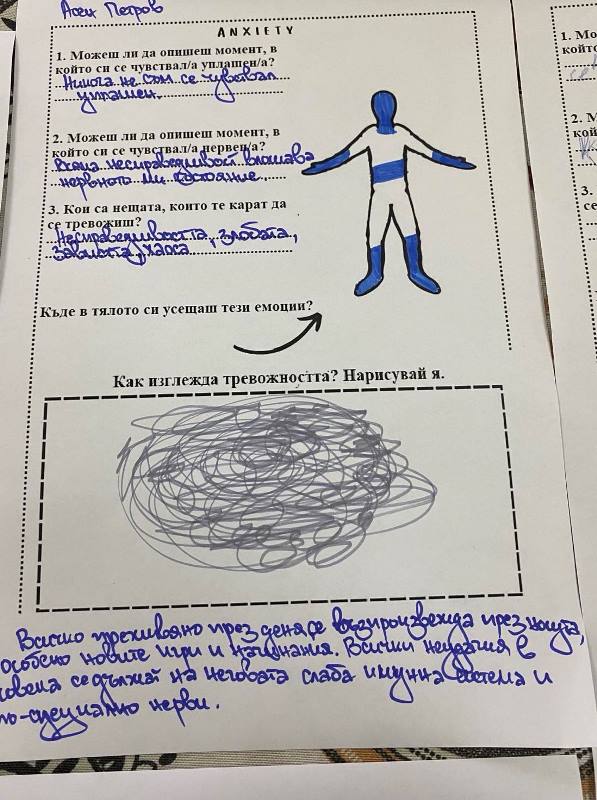 Асен Петров
ANXIETY
1. Можеш ли да опишеш момент, в
който си се чувствал/а уплашен/а?
Никога не съм се чувствал
уплашен.
2. Можеш ли да опишеш момент, в
който си се чувствал/а нервен/а?
Всяка несправедливост влошава
нервното ми състояние.
3. Кои са нещата, които те карат да
се тревожиш?
Несправедливостта, злобата,
завистта, хаоса
Къде в тялото си усещаш тези емоции?
Как изглежда тревожността? Нарисувай я.
Всичко преживяно през деня се възпроизвежда през нощта,
особено новите игри и начинания. Всички неудачия в
човека се дължат на неговата слаба имунна система и
по-специално нерви.
1. Мо
който
2.
кой
3.
се